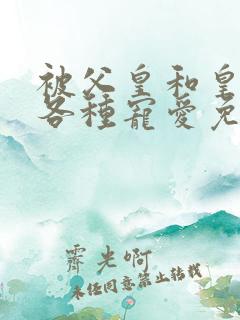 被父皇和皇
各種寵愛免
霽光啊
未經同意禁止轉載